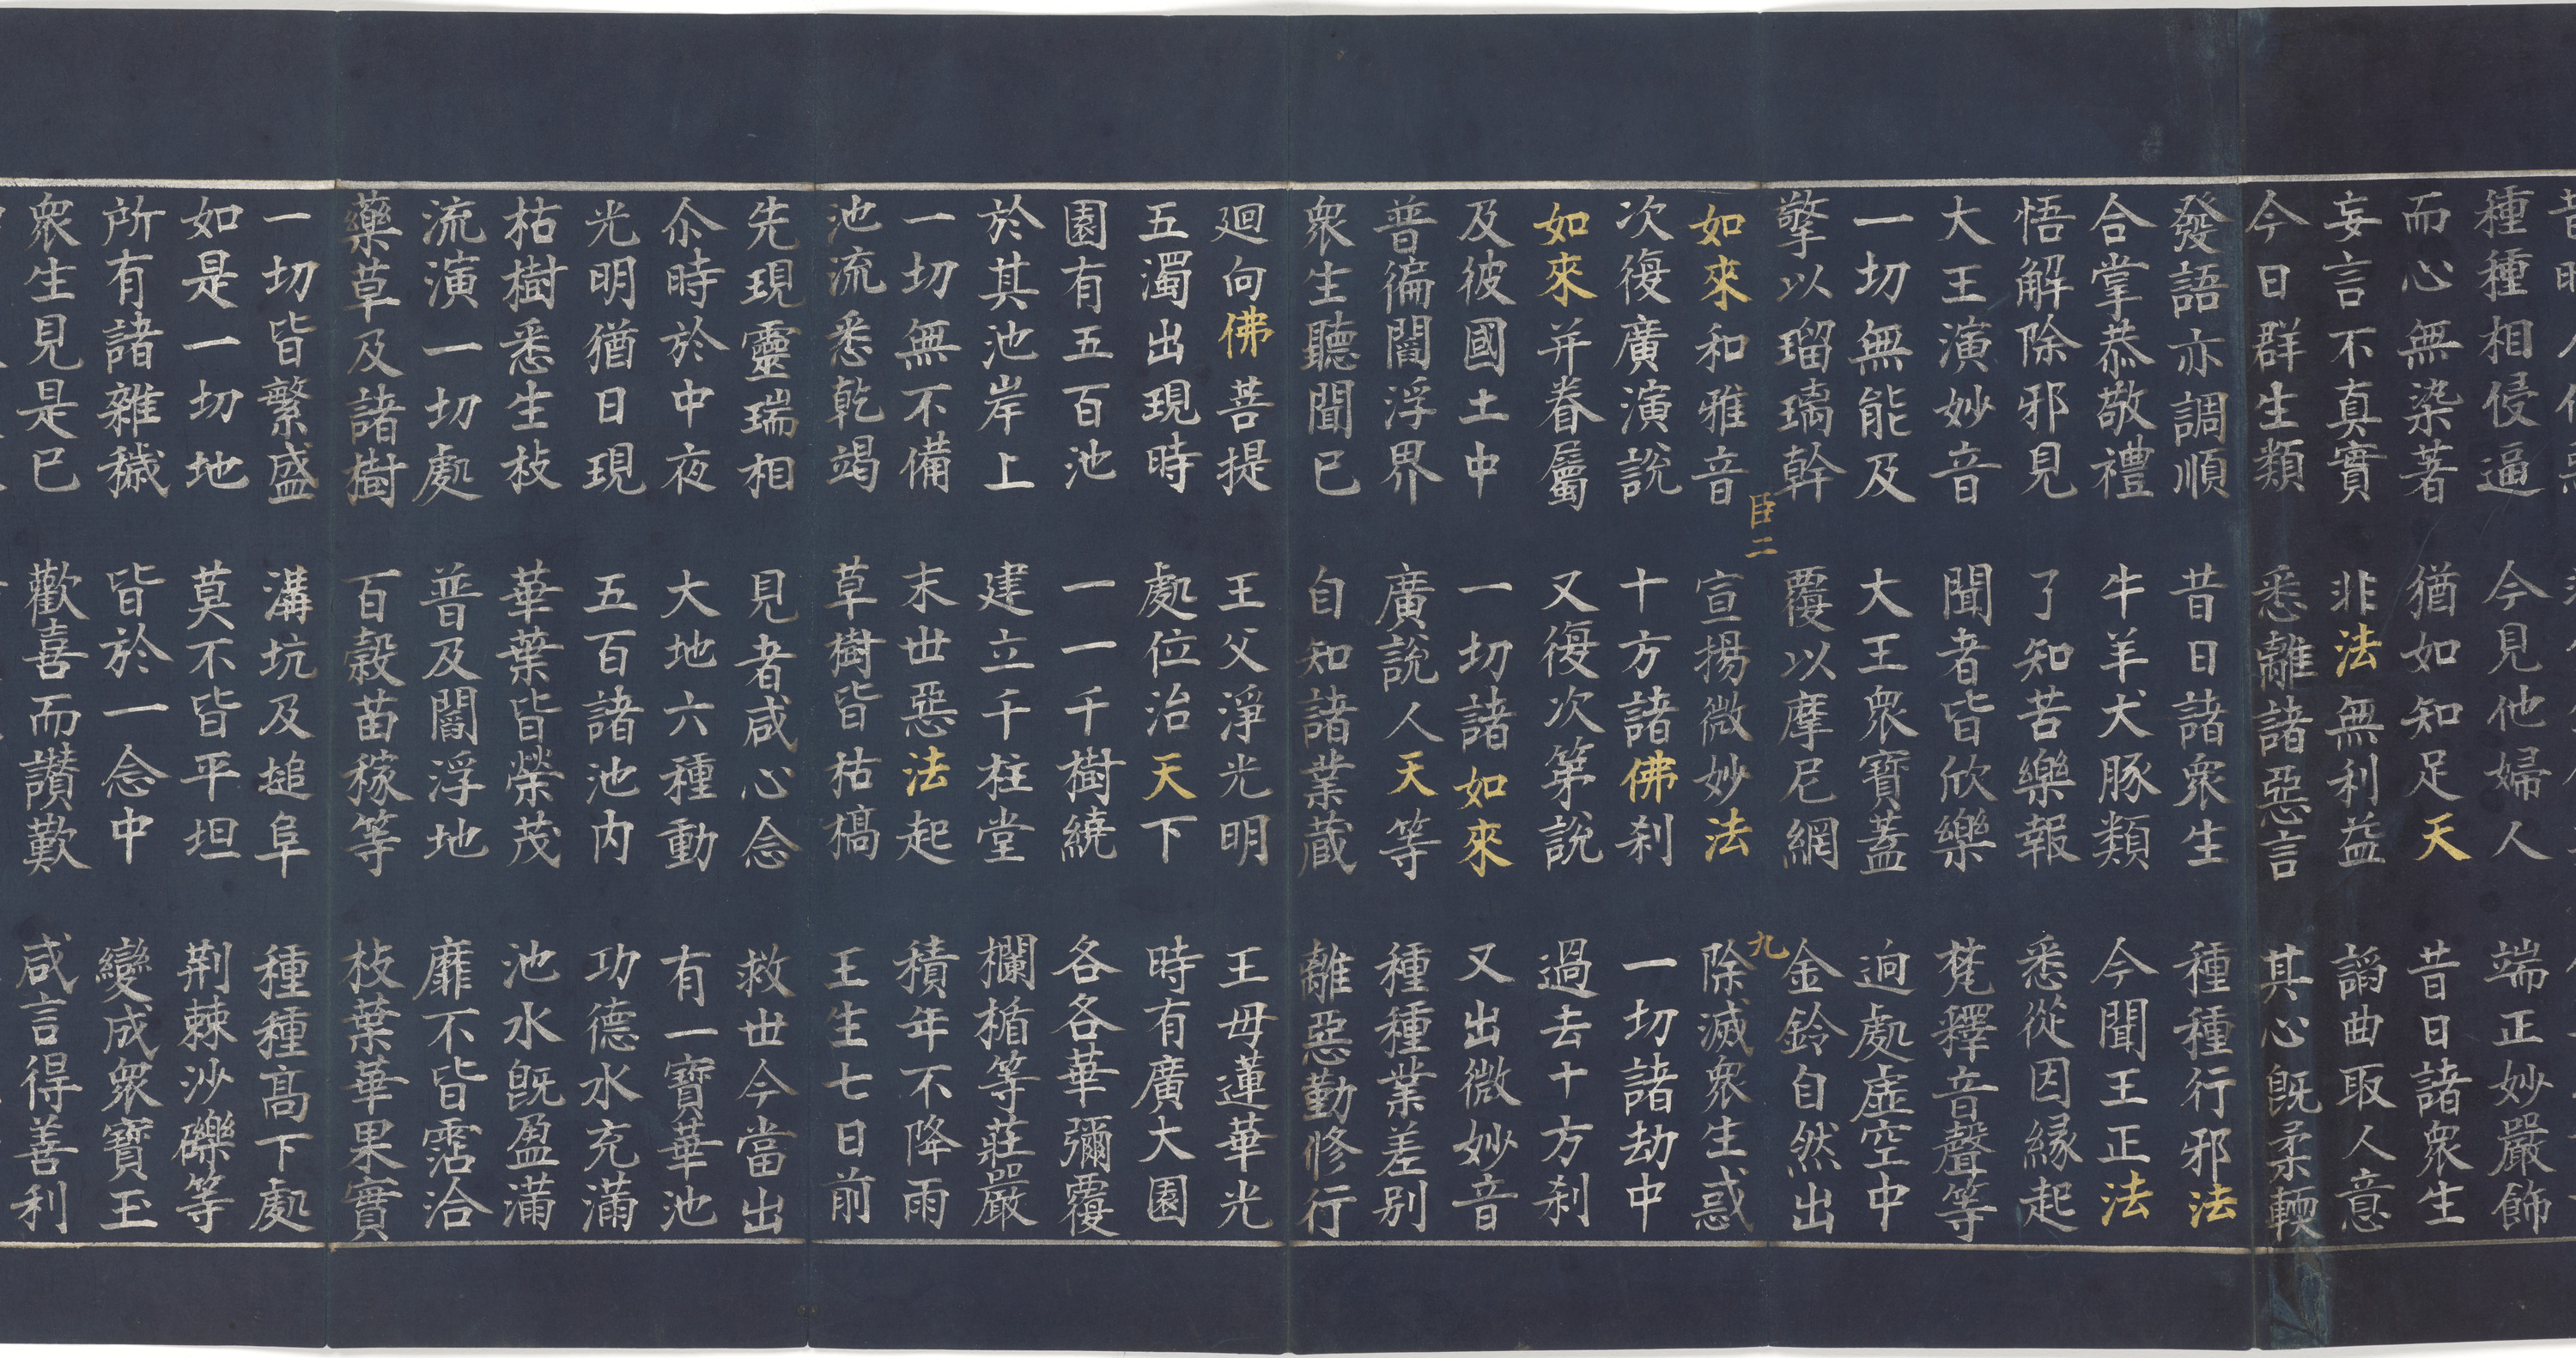 種種相侵逼 今見他婦人 端正妙嚴飾
而心無染著 猶如知足天 昔日諸衆生
妄言不真實 非法無利益 謟曲取人意
今日群生類 悉離諸惡言 其心旣柔輭
發語亦調順 昔日諸衆生 種種行邪法
合掌恭敬禮 牛羊犬豚類 今聞王正法
悟解除邪見 了知苦樂報 悉從因縁起
大王演妙音 聞者皆欣樂 梵釋音聲等
一切無能及 大王衆寶蓋 逈處虛空中
擎以瑠璃幹 覆以摩尼網 金鈴自然出
臣二 九
如來和雅音 宣揚微妙法 除滅衆生惑
次復廣演說 十方諸佛刹 一切諸劫中
如來并眷屬 又復次第說 過去十方刹
及彼國土中 一切諸如來 又出微妙音
普徧閻浮界 廣說人天等 種種業差別
衆生聽聞已 自知諸業蔵 離惡勤修行
廻向佛菩提 王父淨光明 王母蓮華光
五濁出現時 處位治天下 時有廣大園
園有五百池 一一千樹繞 各各華彌覆
於其池岸上 建立千柱堂 欄楯等莊嚴
一切無不備 末世惡法起 積年不降雨
池流悉乾竭 草樹皆枯槁 王生七日前
先現靈瑞相 見者咸心念 救世今當出
尒時於中夜 大地六種動 有一寶華池
光明猶日現 五百諸池内 功德水充滿
枯樹悉生枝 華葉皆榮茂 池水旣盈滿
流演一切處 普及閻浮地 靡不皆霑洽
藥草及諸樹 百穀苗稼等 枝葉華果實
一切皆繁盛 溝坑及塠阜 種種高下處
如是一切地 莫不皆平坦 荆棘沙礫等
所有諸雜穢 皆於一念中 變成衆寶玉
衆生見是已 歡喜而讃歎 咸言得善利